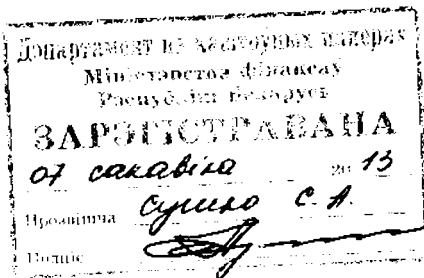 Дэпартамент па каштоўных паперах
Міністэрства фінансаў
Рэспублікі Беларусь
ЗАРЭГІСТРАВАНА
07 сакавіка 20 13
Прозвішча С. А.
Подпіс